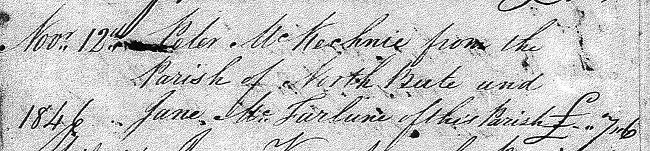 Novr 12th Peter McKechnie from the
Parish of North Bute and
1846 Jane McFarlune of this Parish £ " 7 " 6